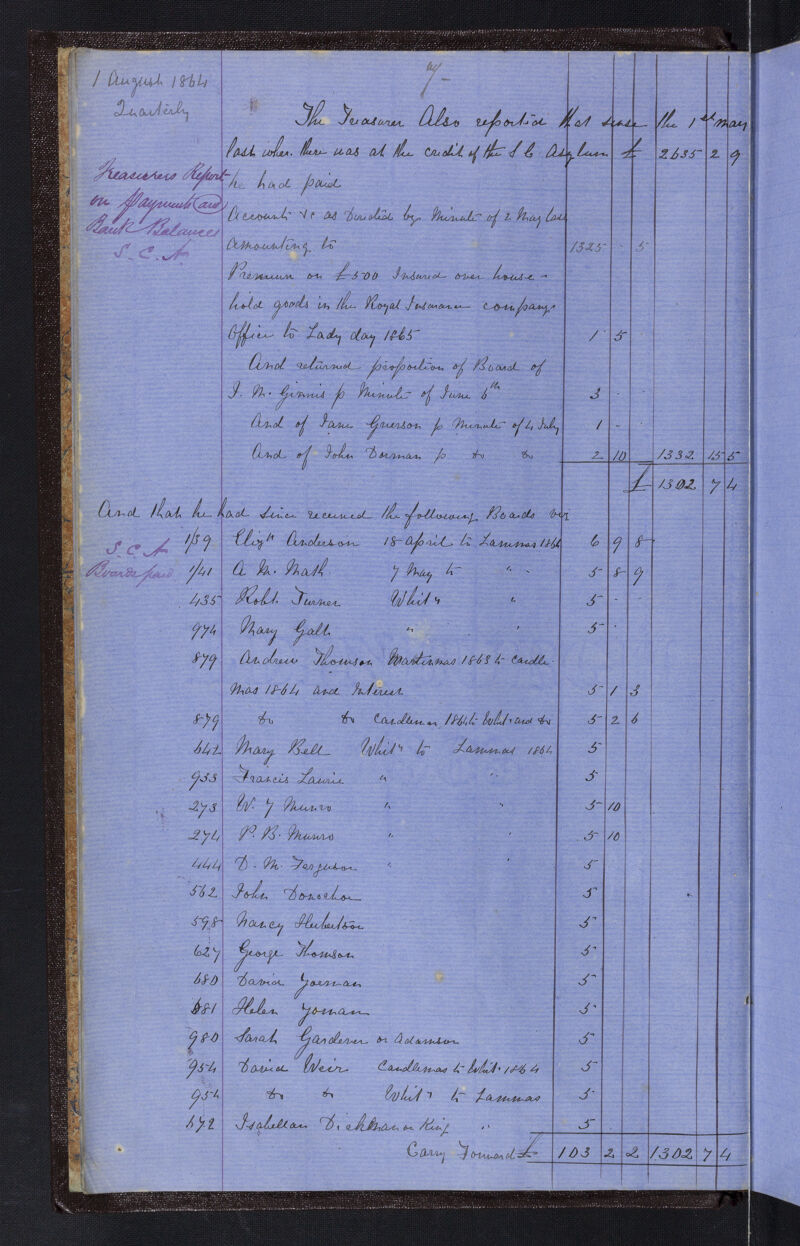 7
1 August 1864
Quarterly
The Treasurer Also reported that since the 1st May
last when there was at the credit of the S C Asylum £ 2635 2 9
Treasurers Report
on Payments and
Bank Balances
S. C. A.
he had paid
Accounts &c as Directed by Minute of 2 May last
amounting to 1325 - 5
Premium on £500 Insured over house-
hold goods in the Royal Insurance company's
Office to Lady day 1865 1 5
And returned proportion of Board of
J. M. Ginnis p Minute of June 6th 3 - -
And of Jane Grierson p Minute of 4 July 1 - -
And of John Dorman p do do 2 10 1332 15 5
£ 1302 7 4
And that he had since received the following Boards viz
S. C. A
Boards paid
1/39 Elizth Anderson 18 April to Lammas 1864 6 9 8
1/41 A Mc Math 7 May to " " 5 8 9
435 Robt Turner Whity " 5 - -
974 Mary Galt " " 5 -
879 Andrew Thomson Martinmas 1863 to Candle-
mas 1864 and Interest 5 1 3
879 do do Candlemas 1864 to Whity and do 5 2 6
642 Mary Bell Whity to Lammas 1864 5
933 Francis Laurie " " 5
273 W. F Munro " " 5 10
274 P. B. Munro " " 5 10
444 D. M. Ferguson " " 5
562 John Donochoe 5
598 Nancy Herbertson 5
627 George Thomson 5
680 David Yoeman 5
681 Helen Yoman 5
980 Sarah Gardener or Adamson 5
954 David Weir Candlemas to Whit. 1864 5
954 do do Whity to Lammas 5
672 Isabellan or King " 5
Carry Forward £ 103 2 2 1302 7 4